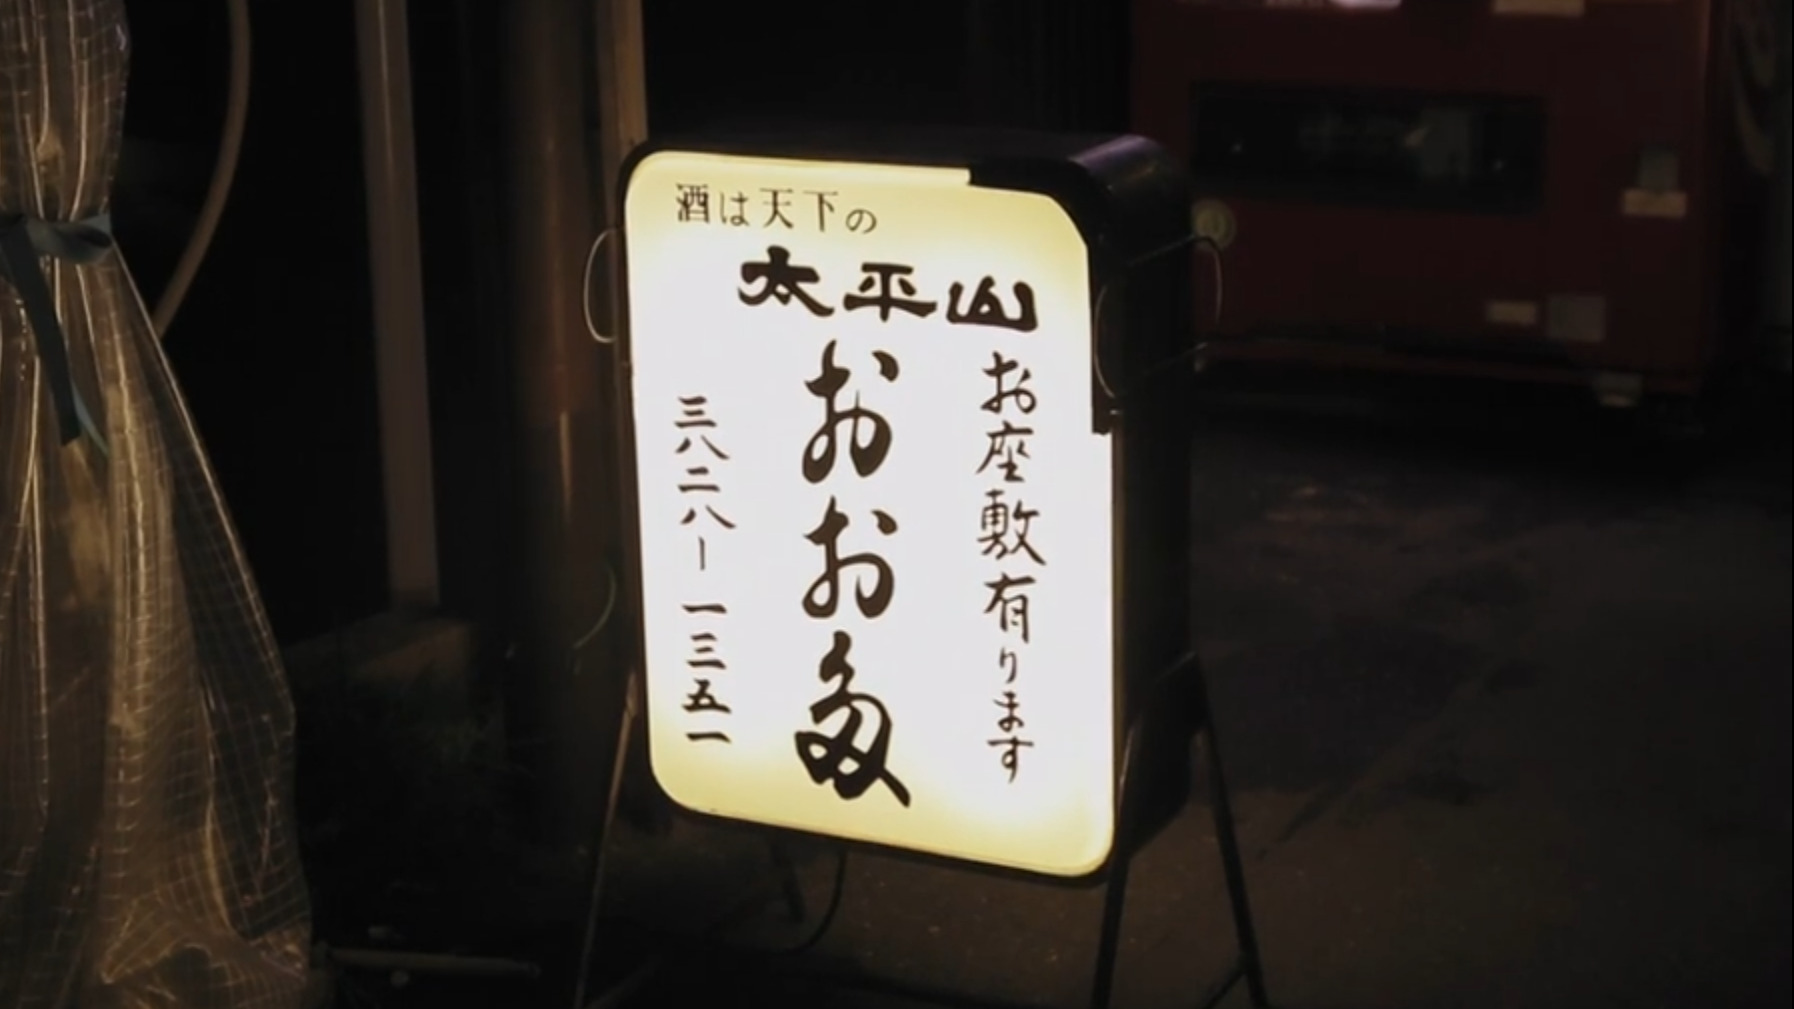 酒は天下の
太平山
お座敷有ります
おおま
三八二八ー一三五一